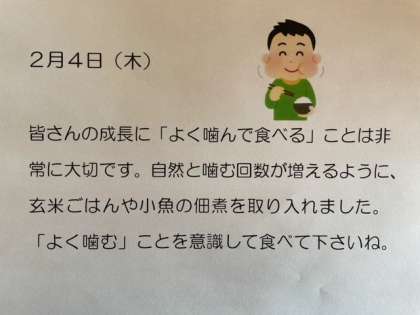 ２月４日（木）
皆さんの成長に「よく噛んで食べる」ことは非
常に大切です。自然と噛む回数が増えるように、
玄米ごはんや小魚の佃煮を取り入れました。
「よく噛む」ことを意識して食べて下さいね。